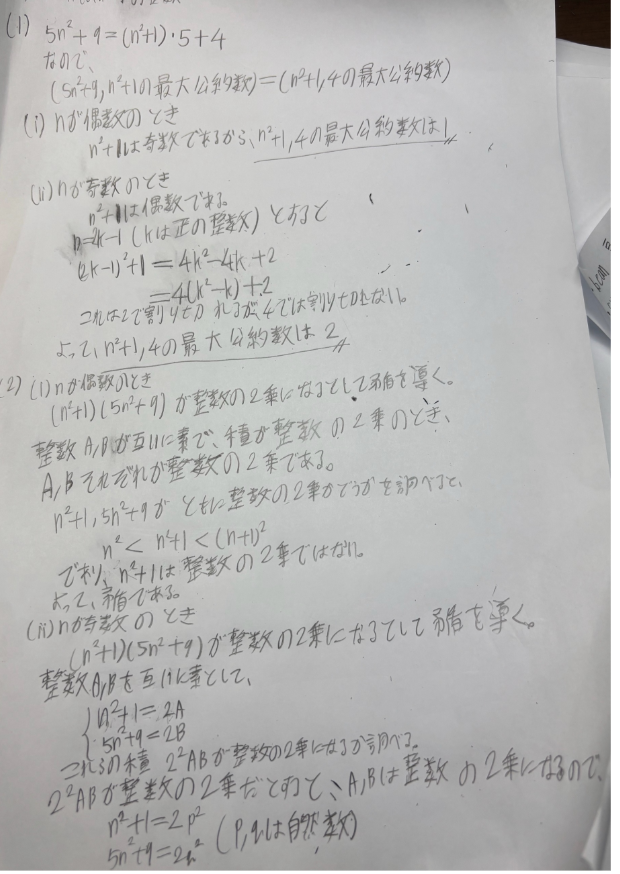 (1)
5n²+9=(n²+1)・5+4
なので、
(5n²+9, n²+1の最大公約数)=(n²+1,4の最大公約数)
(i) nが偶数のとき
n²+1は奇数であるから、n²+1,4の最大公約数は1
(ii) nが奇数のとき
n²+1は偶数である。
n=2k-1 (kは正の整数) とすると
(2k-1)²+1=4k²-4k+2
=4(k²-k)+2
これは2で割り切れるが、4では割り切れない。
よって、n²+1,4の最大公約数は2
(2) (i) nが偶数のとき
(n²+1)(5n²+9)が整数の2乗になるとして矛盾を導く。
整数A,Bが互いに素で、積が整数の2乗のとき、
A,Bそれぞれが整数の2乗である。
n²+1,5n²+9がともに整数の2乗かどうかを調べると、
n²<n²+1<(n+1)²
であり、n²+1は整数の2乗ではない。
よって、矛盾である。
(ii) nが奇数のとき
(n²+1)(5n²+9)が整数の2乗になるとして矛盾を導く。
整数A,Bを互いに素として、
{n²+1=2A
5n²+9=2B
これらの積 2²ABが整数の2乗になるか調べる。
2²ABが整数の2乗だとすると、A,Bは整数の2乗になるので、
n²+1=2p²
5n²+9=2q² (p,qは自然数)